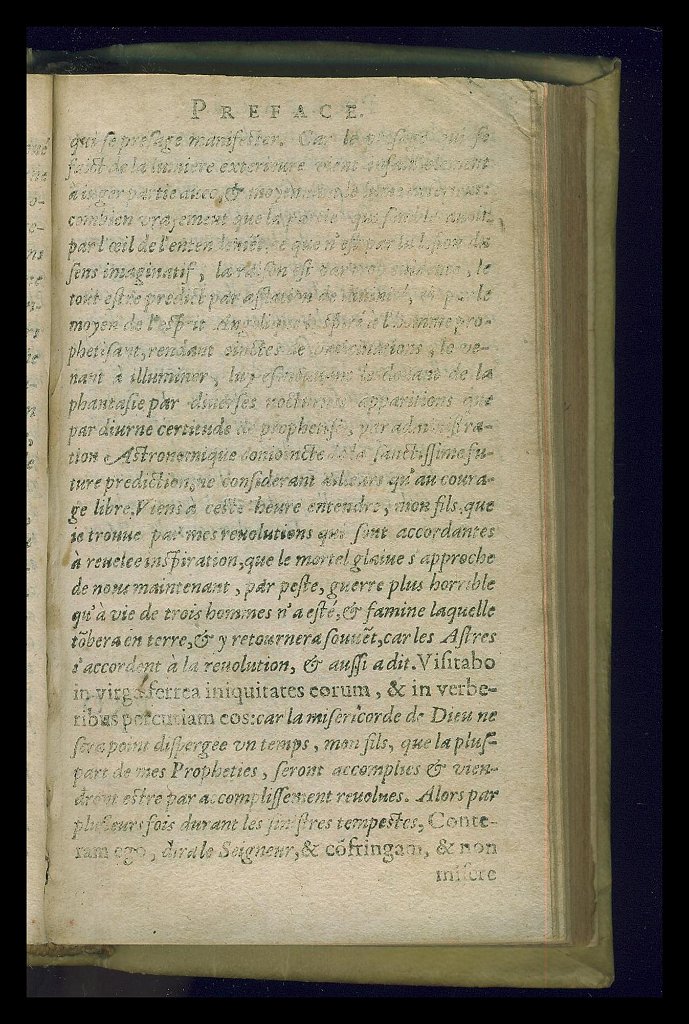 PREFACE.
qui se presage manifester. Car le presage qui se
faict de la lumiere exterieure vient
à iuger partie auec, & moyennant le
combien vrayement que la partie qui semble auoir
par l'œil de l'entendemēt, ce que n'est par la lesion du
sens imaginatif, la raison est par trop euidente, le
tout estre predict par afflation de diuinité, & par le
moyen de l'esprit Angelique inspiré à l'homme pro-
phetisant, rendant oinctes de vaticinations, le ve-
nant à illuminer, luy esmouuant le deuant de la
phantasie par diuerses nocturnes apparitions que
par diurne certitude il prophetise, par administra-
tion Astronomique conioincte de la sanctissime fu-
ture prediction, ne considerant ailleurs qu'au coura-
ge libre. Viens à ceste heure entendre, mon fils, que
ie trouue par mes reuolutions qui sont accordantes
à reuelee inspiration, que le mortel glaiue s'approche
de nous maintenant, par peste, guerre plus horrible
qu'à vie de trois hommes n'a esté, & famine laquelle
tōbera en terre, & y retournera souuēt, car les Astres
s'accordent à la reuolution, & aussi a dit. Visitabo
in virga ferrea iniquitates eorum, & in verbe-
ribus percutiam eos: car la misericorde de Dieu ne
sera point dispergee vn temps, mon fils, que la plus-
part de mes Propheties, seront accomplies & vien-
dront estre par accomplissement reuolues. Alors par
plusieurs fois durant les sinistres tempestes, Conte-
ram ego, dira le Seigneur, & cōfringam, & non
misere